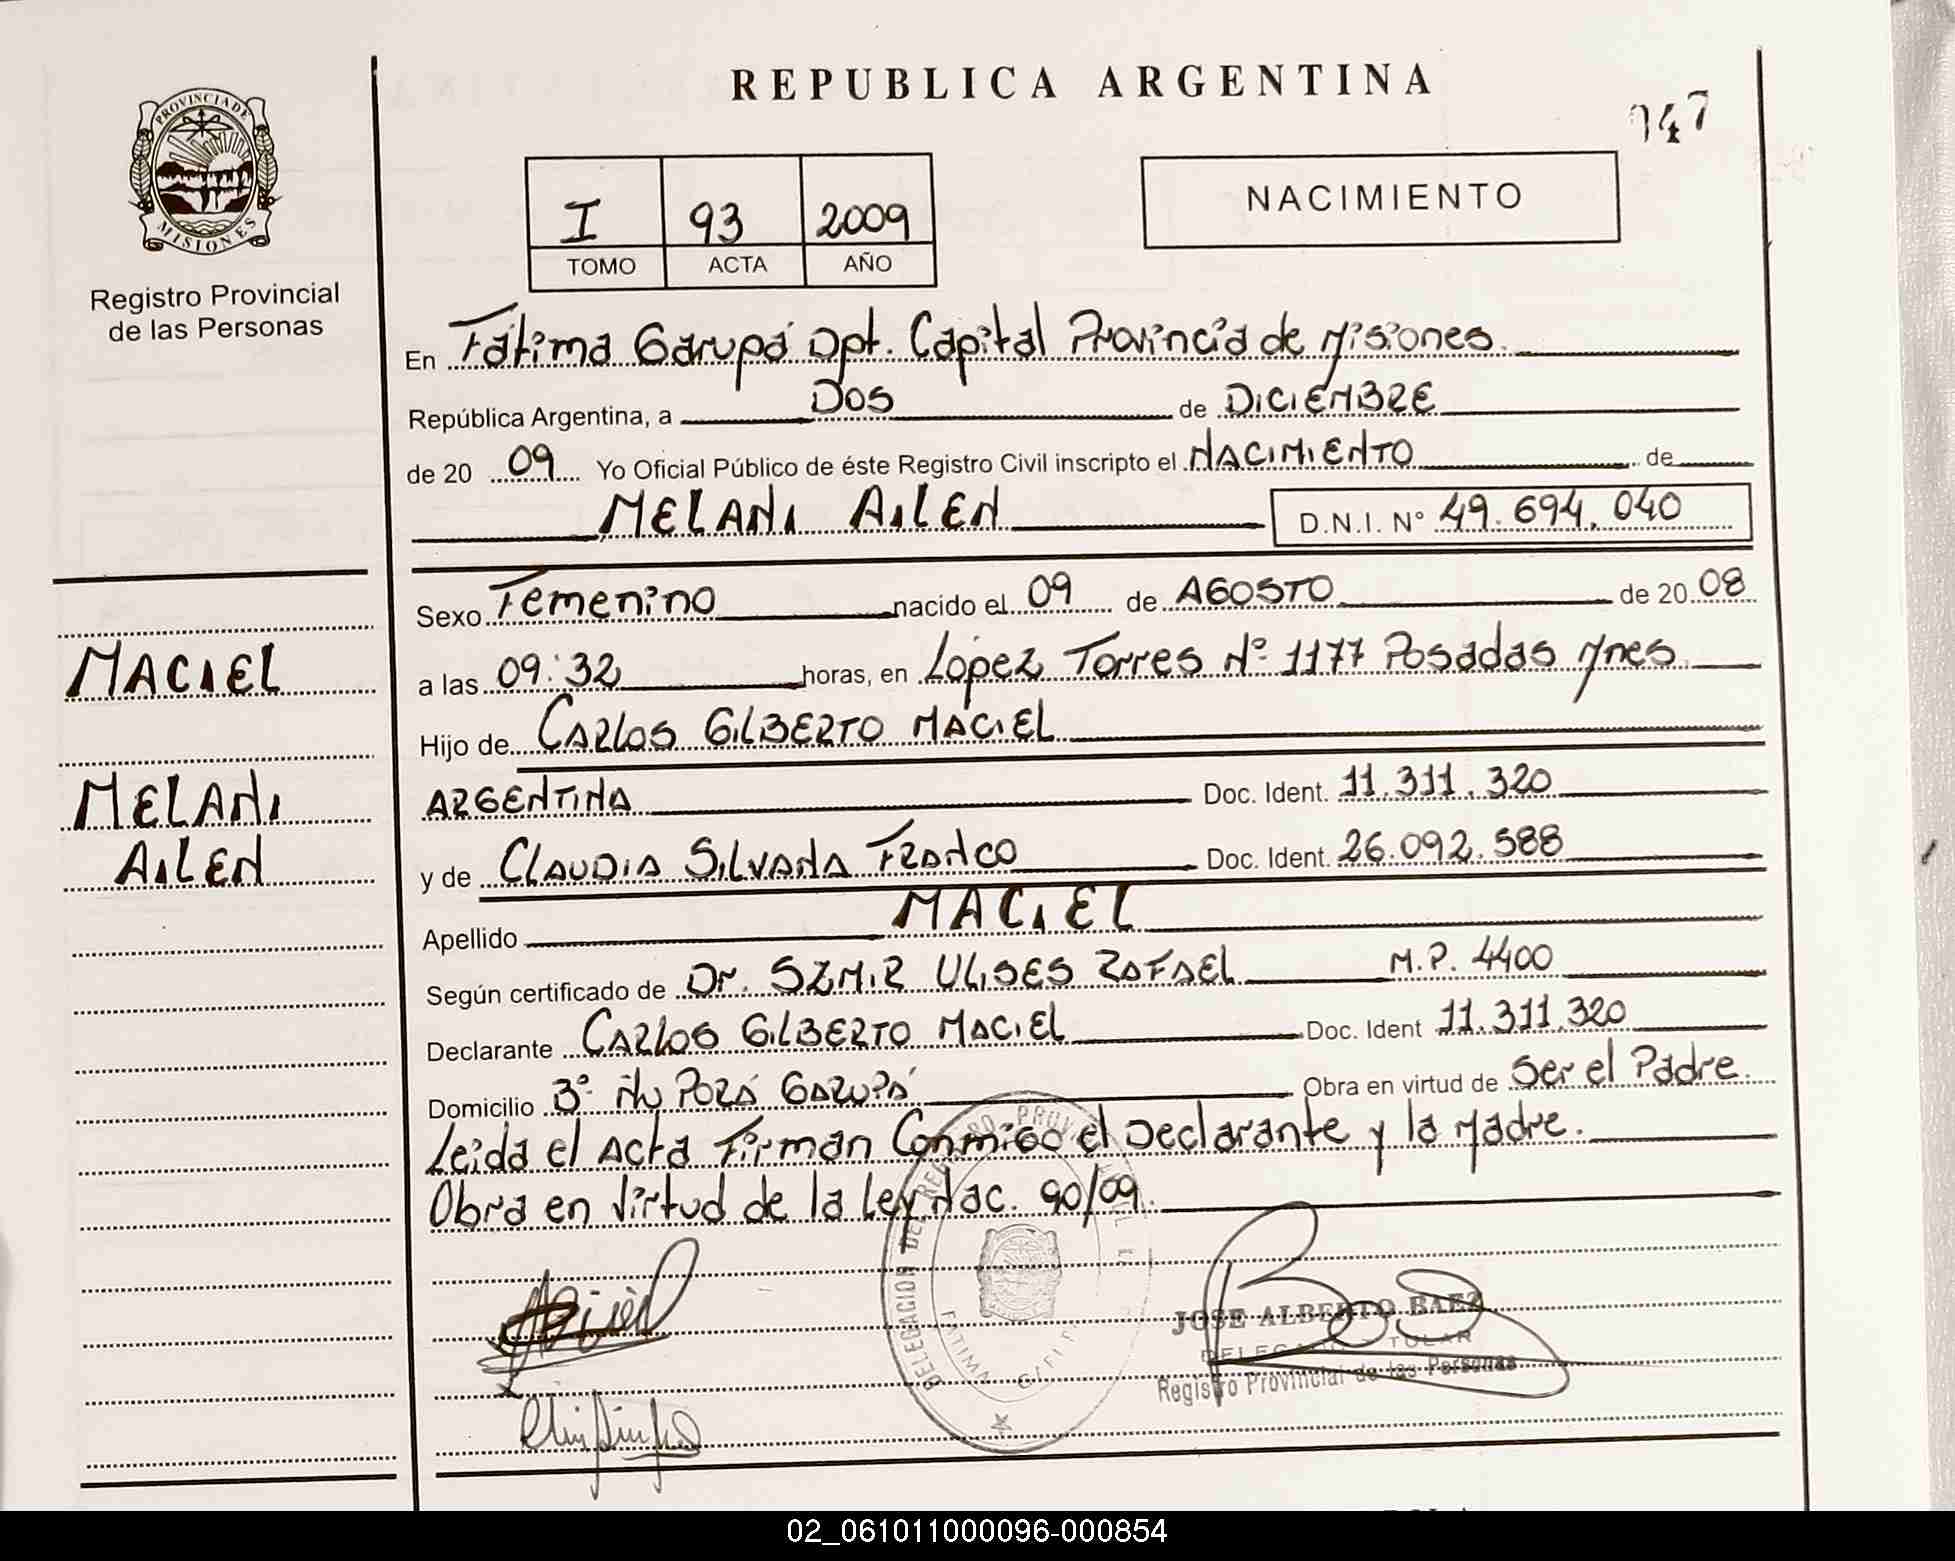 REPUBLICA ARGENTINA
147
PROVINCIA DE
MISIONES
Registro Provincial
de las Personas
I 93 2009
TOMO ACTA AÑO
NACIMIENTO
En Fátima Garupá Dpt. Capital Provincia de Misiones.
República Argentina, a DOS de DICIEMBRE
de 20 09 Yo Oficial Público de éste Registro Civil inscripto el NACIMIENTO de
MELANI AILEN D.N.I. Nº 49.694.040
Sexo Femenino nacido el 09 de AGOSTO de 20 08
a las 09:32 horas, en López Torres Nº 1177 Posadas Mnes.
Hijo de CARLOS GILBERTO MACIEL
ARGENTINA Doc. Ident. 11.311.320
y de CLAUDIA SILVANA FRANCO Doc. Ident. 26.092.588
Apellido MACIEL
Según certificado de Dr. SZMIR ULISES RAFAEL M.P. 4400
Declarante CARLOS GILBERTO MACIEL Doc. Ident 11.311.320
Domicilio 3º Ñu PORÁ GARUPÁ Obra en virtud de Ser el Padre.
Leida el Acta Firman Conmigo el Declarante y la Madre.
Obra en Virtud de la Ley Nac. 90/09.
MACIEL
MELANI
AILEN
DELEGACION DEL REGISTRO
JOSE ALBERTO BAEZ
DELEGADO TITULAR
Registro Provincial de las Personas
02_061011000096-000854